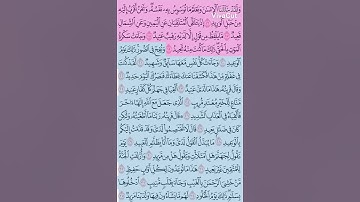 وَلَقَدْ خَلَقْنَا ٱلْإِنسَٰنَ وَنَعْلَمُ مَا تُوَسْوِسُ بِهِۦ نَفْسُهُۥ وَنَحْنُ أَقْرَبُ إِلَيْهِ
VivaCut
مِنْ حَبْلِ ٱلْوَرِيدِ ١٦ إِذْ يَتَلَقَّى ٱلْمُتَلَقِّيَانِ عَنِ ٱلْيَمِينِ وَعَنِ ٱلشِّمَالِ
قَعِيدٌ ١٧ مَّا يَلْفِظُ مِن قَوْلٍ إِلَّا لَدَيْهِ رَقِيبٌ عَتِيدٌ ١٨ وَجَآءَتْ سَكْرَةُ
ٱلْمَوْتِ بِٱلْحَقِّ ذَٰلِكَ مَا كُنتَ مِنْهُ تَحِيدُ ١٩ وَنُفِخَ فِى ٱلصُّورِ ذَٰلِكَ يَوْمُ
ٱلْوَعِيدِ ٢٠ وَجَآءَتْ كُلُّ نَفْسٍ مَّعَهَا سَآئِقٌ وَشَهِيدٌ ٢١ لَّقَدْ كُنتَ
فِى غَفْلَةٍ مِّنْ هَٰذَا فَكَشَفْنَا عَنكَ غِطَآءَكَ فَبَصَرُكَ ٱلْيَوْمَ حَدِيدٌ ٢٢
وَقَالَ قَرِينُهُۥ هَٰذَا مَا لَدَىَّ عَتِيدٌ ٢٣ أَلْقِيَا فِى جَهَنَّمَ كُلَّ كَفَّارٍ عَنِيدٍ ٢٤
مَّنَّاعٍ لِّلْخَيْرِ مُعْتَدٍ مُّرِيبٍ ٢٥ ٱلَّذِى جَعَلَ مَعَ ٱللَّهِ إِلَٰهًا ءَاخَرَ
فَأَلْقِيَاهُ فِى ٱلْعَذَابِ ٱلشَّدِيدِ ٢٦ قَالَ قَرِينُهُۥ رَبَّنَا مَآ أَطْغَيْتُهُۥ وَلَٰكِن كَانَ
فِى ضَلَٰلٍۭ بَعِيدٍ ٢٧ قَالَ لَا تَخْتَصِمُوا۟ لَدَىَّ وَقَدْ قَدَّمْتُ إِلَيْكُم
بِٱلْوَعِيدِ ٢٨ مَا يُبَدَّلُ ٱلْقَوْلُ لَدَىَّ وَمَآ أَنَا۠ بِظَلَّٰمٍ لِّلْعَبِيدِ ٢٩ يَوْمَ
نَقُولُ لِجَهَنَّمَ هَلِ ٱمْتَلَأْتِ وَتَقُولُ هَلْ مِن مَّزِيدٍ ٣٠ وَأُزْلِفَتِ ٱلْجَنَّةُ
لِلْمُتَّقِينَ غَيْرَ بَعِيدٍ ٣١ هَٰذَا مَا تُوعَدُونَ لِكُلِّ أَوَّابٍ حَفِيظٍ ٣٢
مَّنْ خَشِىَ ٱلرَّحْمَٰنَ بِٱلْغَيْبِ وَجَآءَ بِقَلْبٍ مُّنِيبٍ ٣٣ ٱدْخُلُوهَا
بِسَلَٰمٍ ذَٰلِكَ يَوْمُ ٱلْخُلُودِ ٣٤ لَهُم مَّا يَشَآءُونَ فِيهَا وَلَدَيْنَا مَزِيدٌ ٣٥